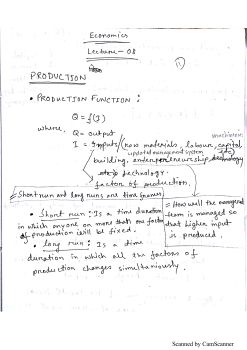 Economics
Lecture - 08
①
PRODUCTION
• PRODUCTION FUNCTION :
Q = f(I)
where,
Q = output
machineries
I = Inputs (raw materials, labour, capital,
updated management system
building, entrepreneurship, technology
technology.
factor of production.
Short run and long runs are time frames
• Short run : Is a time duration
in which anyone or more than one factor
of production will be fixed.
• Long run : Is a time
duration in which all the factors of
production changes simultaneously.
= How well the
team is managed so
that higher input
is produced.
Scanned by CamScanner